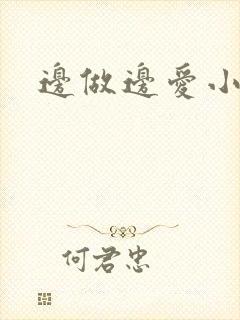 邊做邊愛小
何君忠